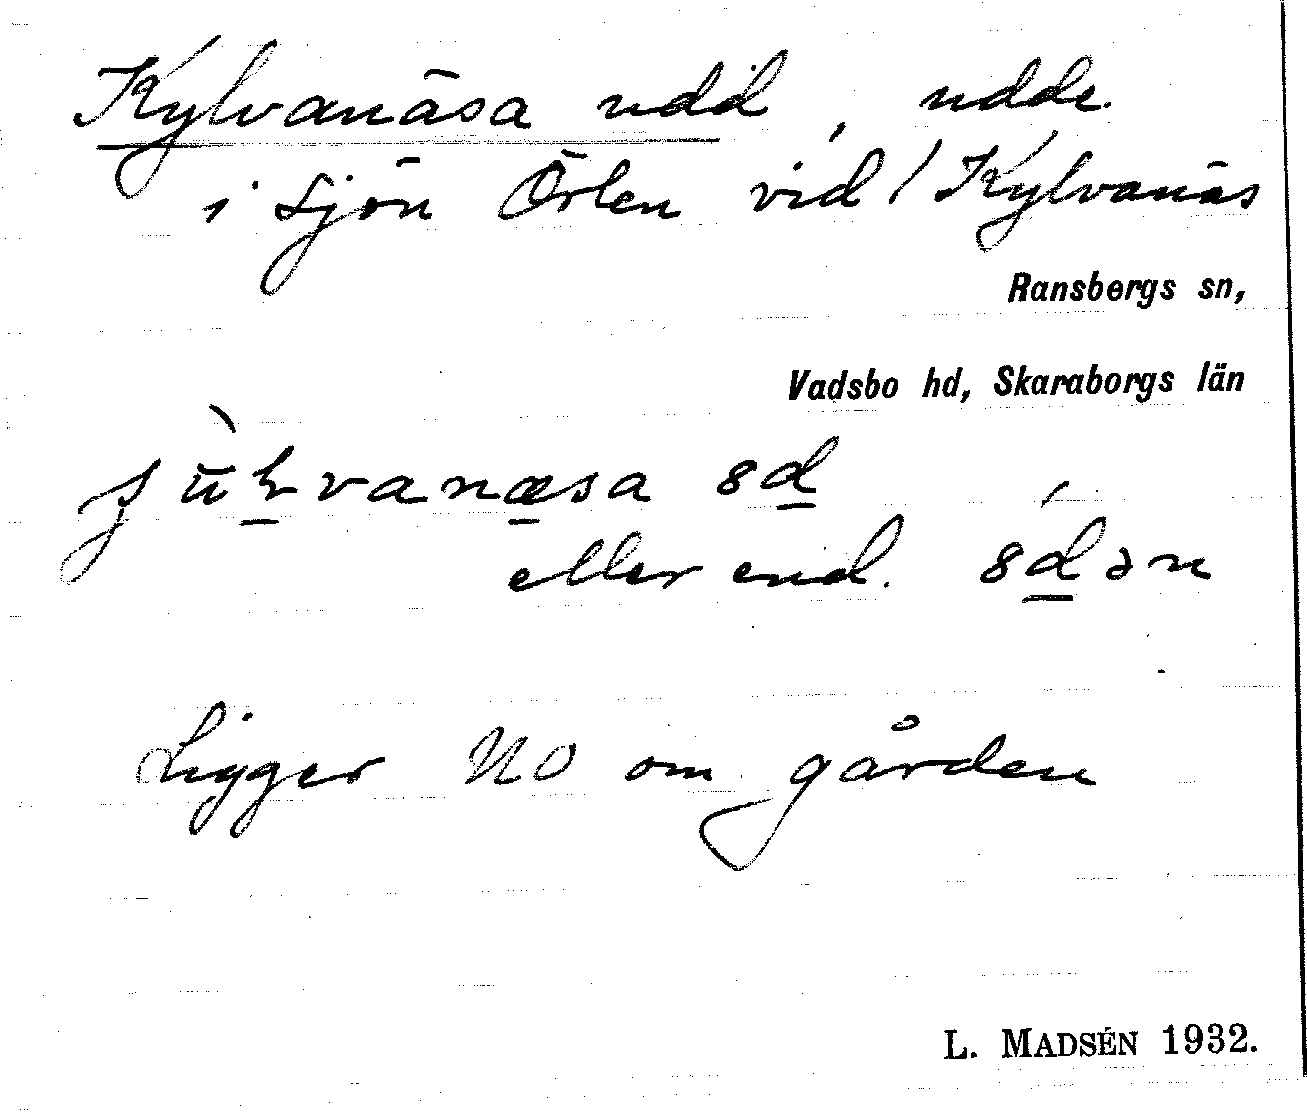 Kylvanäsa udd, udde
i sjön Örlen vid / Kylvanäs
Ransbergs sn,
Vadsbo hd, Skaraborgs län
eller end.
Ligger NO om gården
L. MADSÉN 1932.